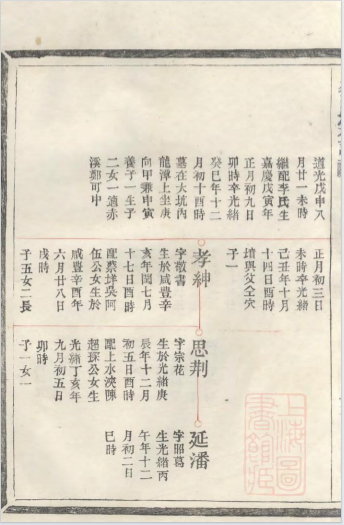 道光戊申八
月廿一未時
繼配李氏生
嘉慶戊寅年
正月初九日
卯時卒光緒
癸巳年十二
月初十酉時
墓在大坑內
龍潭上坐庚
向甲兼申寅
養子一生子
二女一適赤
溪鄭可中
正月初三日
未時卒光緒
己丑年十月
十四日酉時
墳與父仝穴
子一
孝紳
字敬書
生於咸豐辛
亥年閏七月
十七日酉時
配蔡垟吳阿
伍公女生於
咸豐辛酉年
六月廿八日
戌時
子五女二長
思荆
字宗花
生於光緒庚
辰年十二月
初五日酉時
配上水洨陳
超琛公女生
光緒丁亥年
九月初五日
卯時
子一女一
延潘
字昭葛
生光緒丙
午年十二
月初二日
巳時
上海圖
書館藏